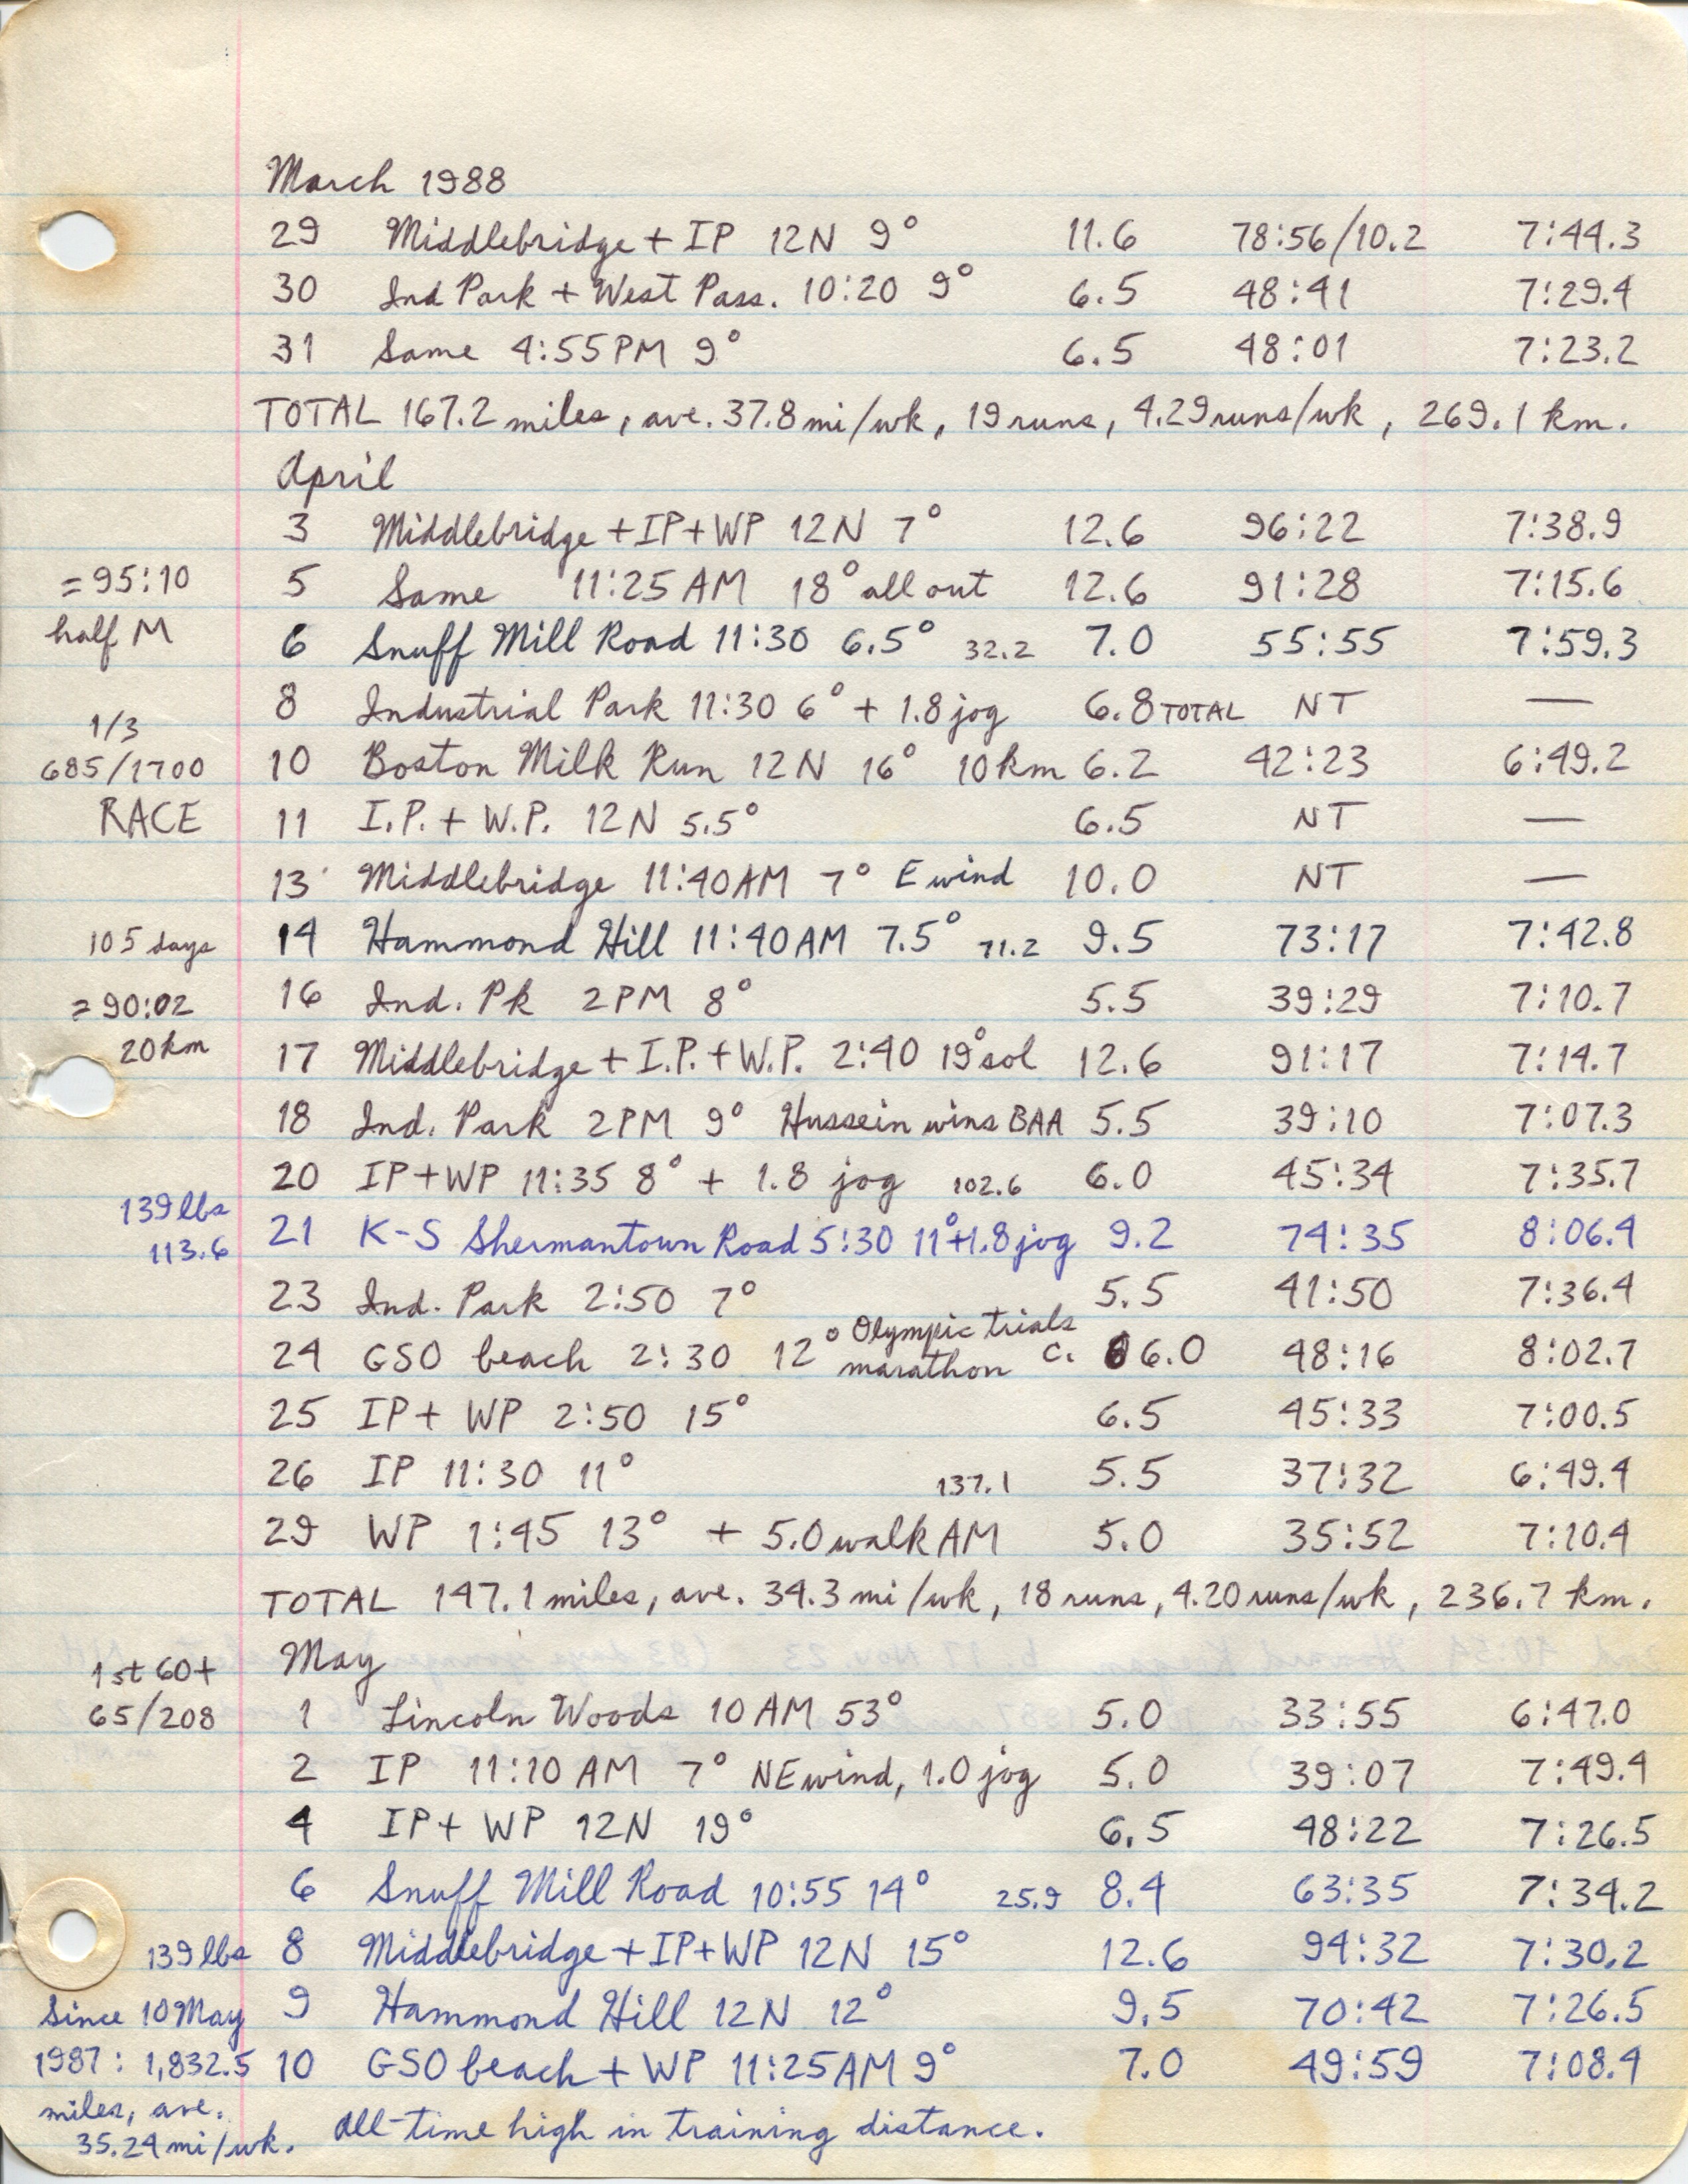 March 1988
29 Middlebridge + IP 12N 9° 11.6 78:56/10.2 7:44.3
30 Ind Park + West Pass. 10:20 9° 6.5 48:41 7:29.4
31 Same 4:55PM 9° 6.5 48:01 7:23.2
TOTAL 167.2 miles, ave. 37.8 mi/wk, 19 runs, 4.29 runs/wk, 269.1 km.
April
3 Middlebridge + IP + WP 12N 7° 12.6 96:22 7:38.9
= 95:10 5 Same 11:25 AM 18° all out 12.6 91:28 7:15.6
half M 6 Snuff Mill Road 11:30 6.5° 32.2 7.0 55:55 7:59.3
8 Industrial Park 11:30 6° + 1.8 jog 6.8 TOTAL NT —
1/3
685/1700 10 Boston Milk Run 12N 16° 10km 6.2 42:23 6:49.2
RACE 11 I.P. + W.P. 12N 5.5° 6.5 NT —
13 Middlebridge 11:40AM 7° E wind 10.0 NT —
105 days 14 Hammond Hill 11:40AM 7.5° 71.2 9.5 73:17 7:42.8
= 90:02 16 Ind. Pk 2PM 8° 5.5 39:29 7:10.7
20km 17 Middlebridge + I.P. + W.P. 2:40 19° sol 12.6 91:17 7:14.7
18 Ind. Park 2PM 9° Hussein wins BAA 5.5 39:10 7:07.3
20 IP+WP 11:35 8° + 1.8 jog 102.6 6.0 45:34 7:35.7
139 lbs
113.6 21 K-S Shermantown Road 5:30 11° +1.8 jog 9.2 74:35 8:06.4
23 Ind. Park 2:50 7° 5.5 41:50 7:36.4
24 GSO beach 2:30 12° Olympic trials marathon c. 6.0 48:16 8:02.7
25 IP + WP 2:50 15° 6.5 45:33 7:00.5
26 IP 11:30 11° 137.1 5.5 37:32 6:49.4
29 WP 1:45 13° + 5.0 walk AM 5.0 35:52 7:10.4
TOTAL 147.1 miles, ave. 34.3 mi/wk, 18 runs, 4.20 runs/wk, 236.7 km.
May
1st 60+
65/208 1 Lincoln Woods 10 AM 53° 5.0 33:55 6:47.0
2 IP 11:10 AM 7° NE wind, 1.0 jog 5.0 39:07 7:49.4
4 IP + WP 12N 19° 6.5 48:22 7:26.5
6 Snuff Mill Road 10:55 14° 25.9 8.4 63:35 7:34.2
139 lbs 8 Middlebridge + IP+WP 12N 15° 12.6 94:32 7:30.2
Since 10 May 9 Hammond Hill 12N 12° 9.5 70:42 7:26.5
1987: 1,832.5 10 GSO beach + WP 11:25AM 9° 7.0 49:59 7:08.4
miles, ave.
35.24 mi/wk. all-time high in training distance.